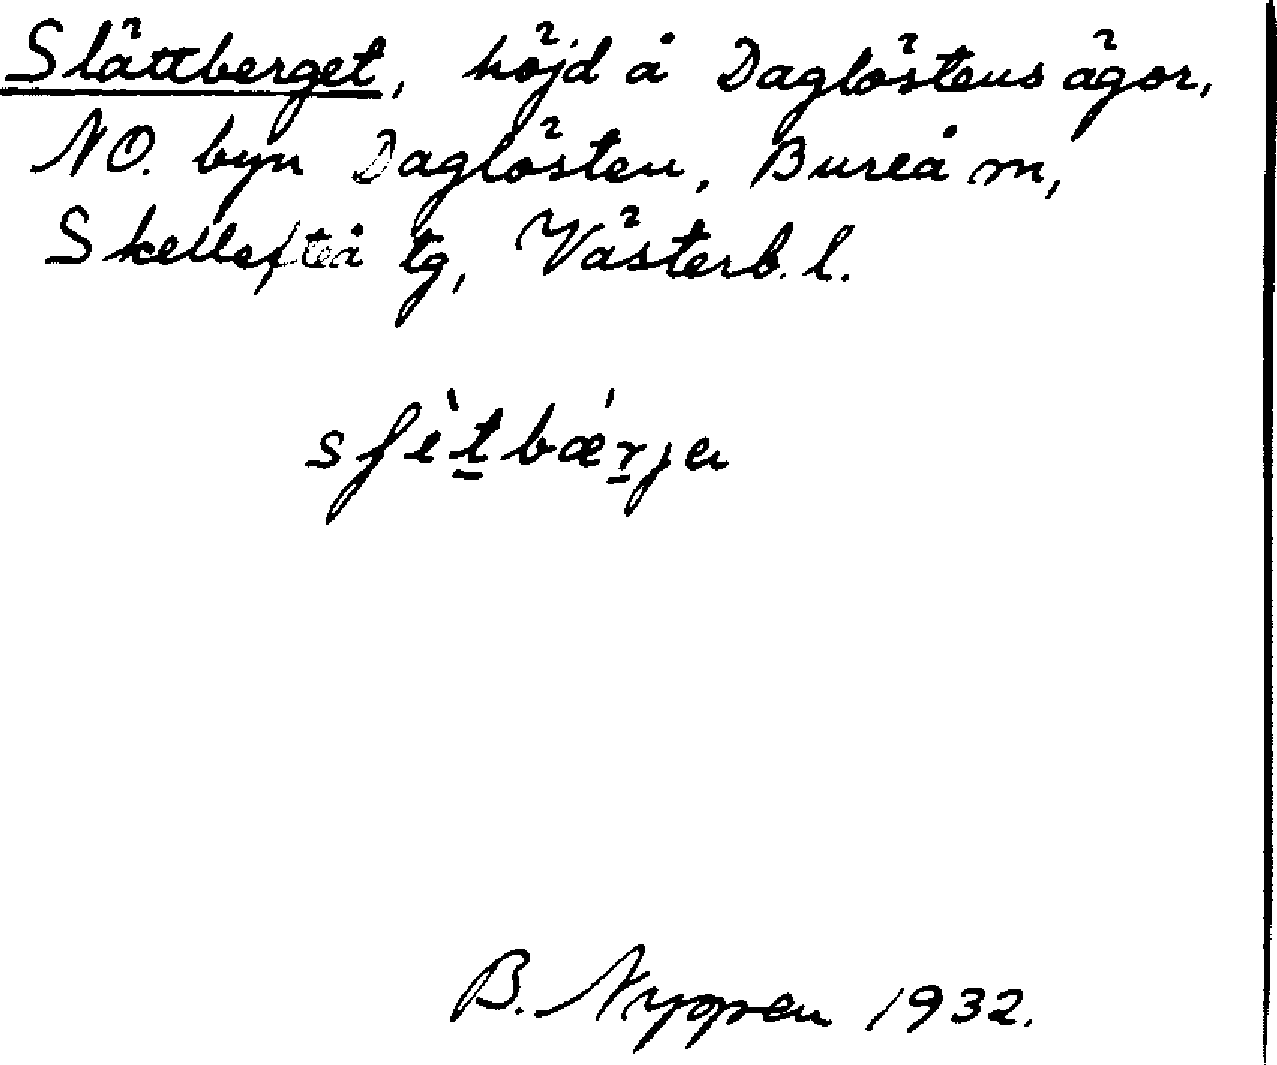 Slättberget, höjd å Daglöstens ägor,
NO. byn Daglösten, Bureå m,
Skellefteå tg, Västerb. l.
B. Nyppen 1932.